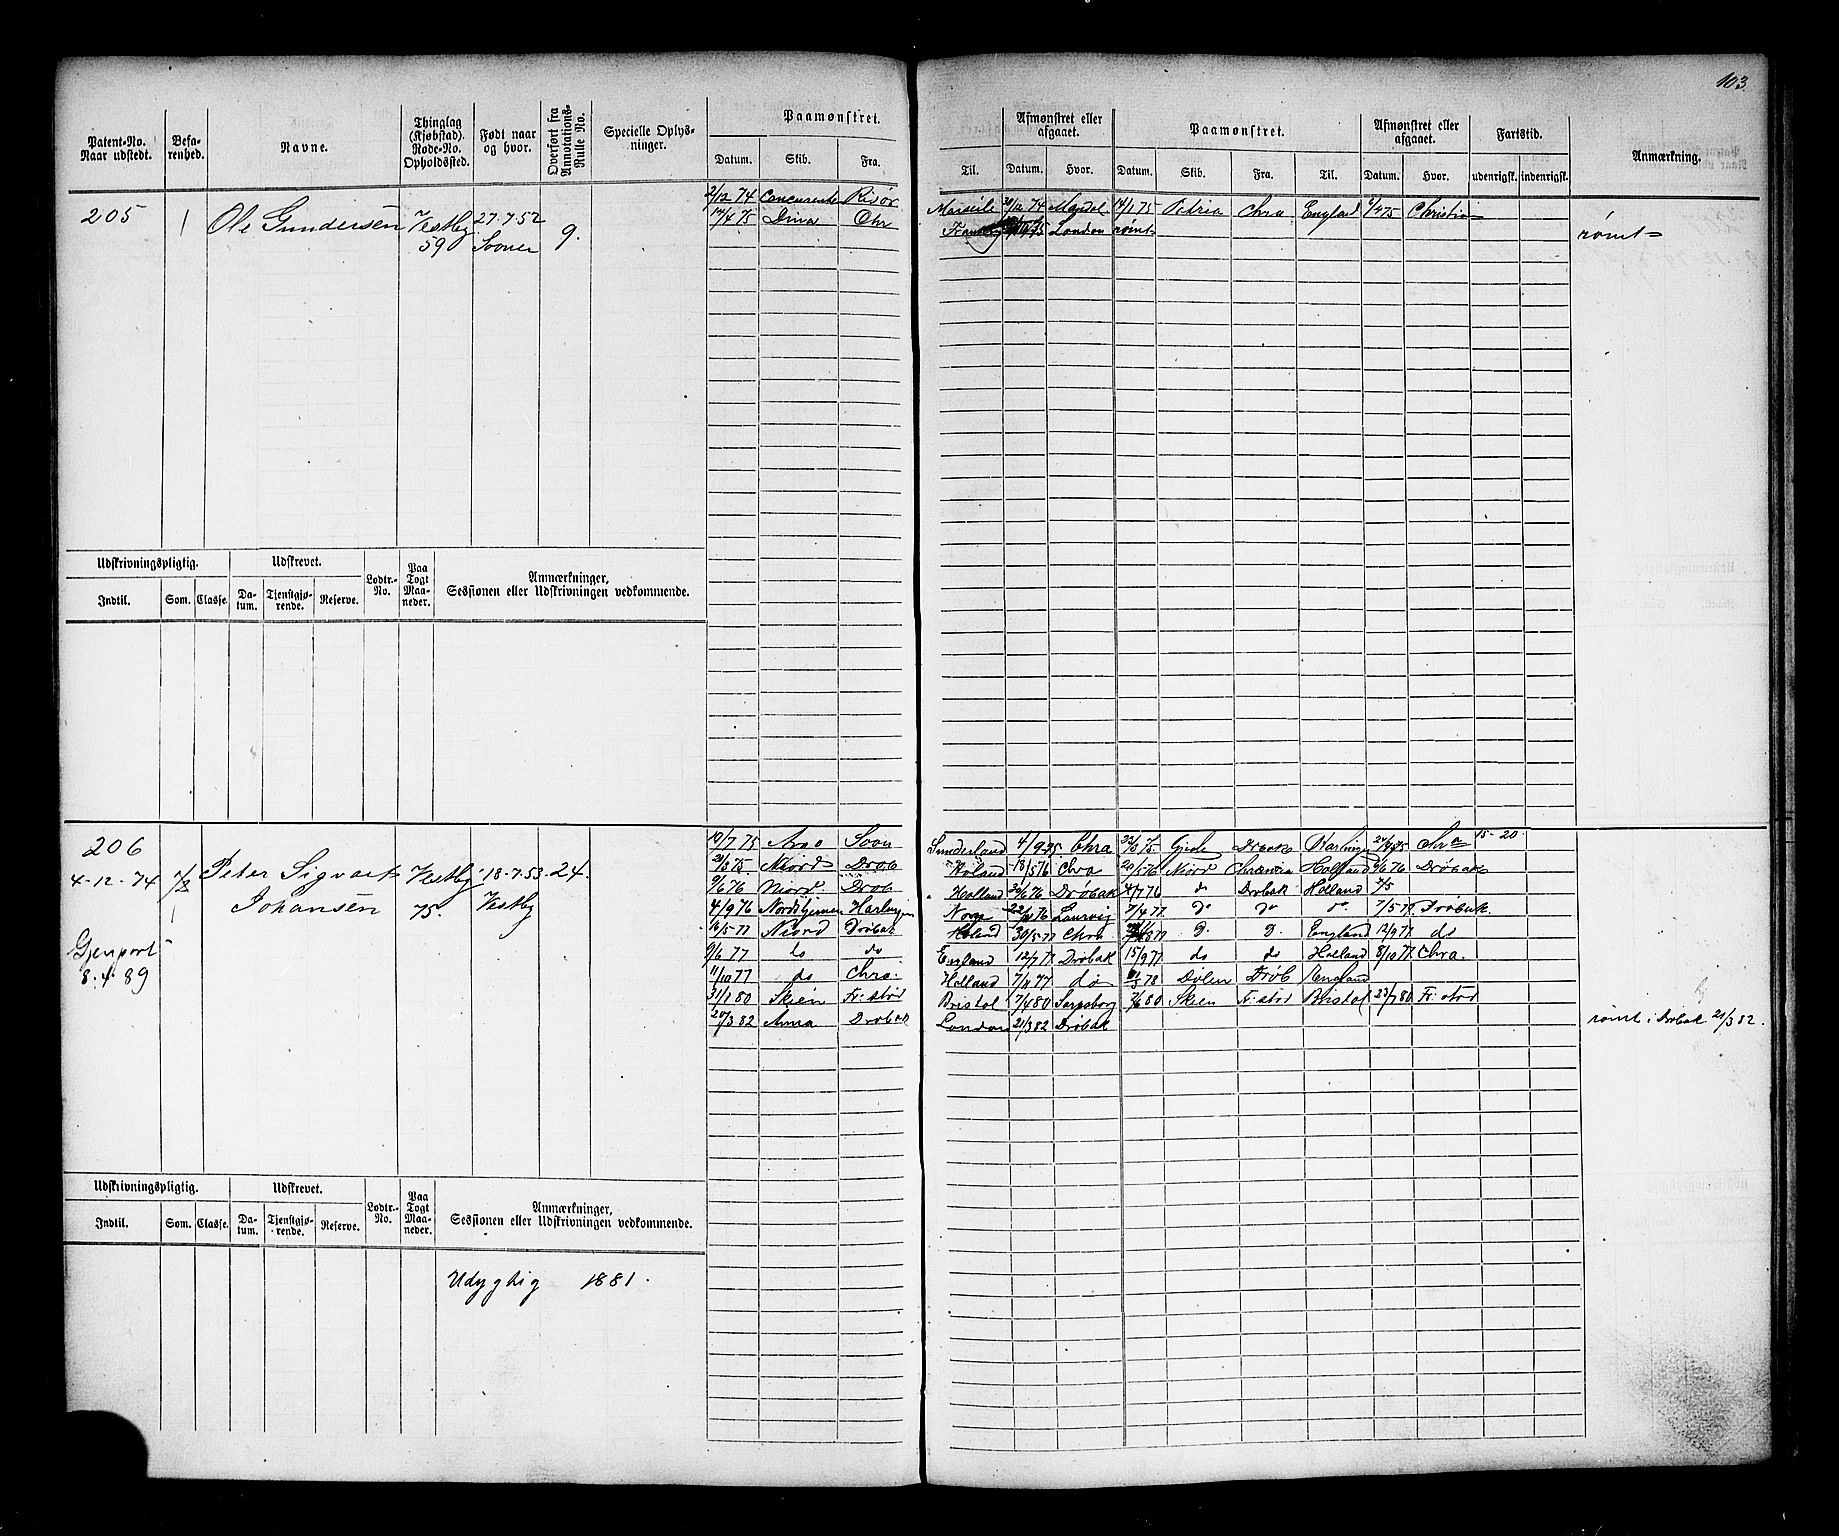 103.
Patent-No. Naar udstedt.
Befarenhed.
Navne.
Thinglag (Kjøbstad). Rode-No. Opholdssted.
Født naar og hvor.
Overført fra Annotations-Rulle No.
Specielle Oplysninger.
Paamønstret.
Datum. Skib. Fra. Til.
Afmønstret eller afgaaet.
Datum. Hvor.
Paamønstret.
Datum. Skib. Fra. Til.
Afmønstret eller afgaaet.
Datum. Hvor.
Fartstid.
udenrigsk. indenrigsk.
Anmærkning.
205 Ole Gundersen Vestby 59 27-7-52 Sooner 9.
2/12 74 Concurente Marseile Mandal 14/1 75 Petria Chra England Christia
14/4 75 Dina Chr London rømt
rømt
Udskrivningspligtig. Udskrevet. Lodtr.-No. Paa Togt Maaneder. Anmærkninger, Sessionen eller Udskrivningen vedkommende.
Indtil. Som. Classe. Datum. Tjenstgjørende. Reserve.
206
4-12-74 Peter Sigvart Johansen Vestby 75. 18-7-53. Vestby 24.
Gjenport 8.4.89
19/7 75 Soon Sunderland 4/9 75 Chra Chra 15-20
Njord Drøb Holand 18/5 76 Chra Njord Holland Drøbak
9/6 76 Njord Drøb Holland Drøbak 4/7 76 do Drøbak Holland
4/9 76 Nordstjernen Harlingen Norge Laurvig 7/4 77 do do do 7/5 77 Drøbak.
16/5 77 Njord Drøbak Holand 30/5 77 Chra England 12/9 77 do
9/6 77 do do England 12/7 77 Drøbak 15/9 77 do do Holland 8/10 77 Chra.
11/10 77 do Chra. Holland 7/11 77 do Drøb England
31/1 80 Skien Fr:stad Bristol 7/4 80 Sarpsborg Skien Fr:stad Bristol 23/7 80 Fr:stad
20/3 82 Anna Drøbak London 21/3 82 Drøbak
rømt i Drøbak 21/3 82.
Udskrivningspligtig. Udskrevet. Lodtr.-No. Paa Togt Maaneder. Anmærkninger, Sessionen eller Udskrivningen vedkommende.
Indtil. Som. Classe. Datum. Tjenstgjørende. Reserve.
Udygtig 1881.